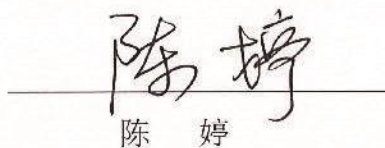 陈婷
陈 婷